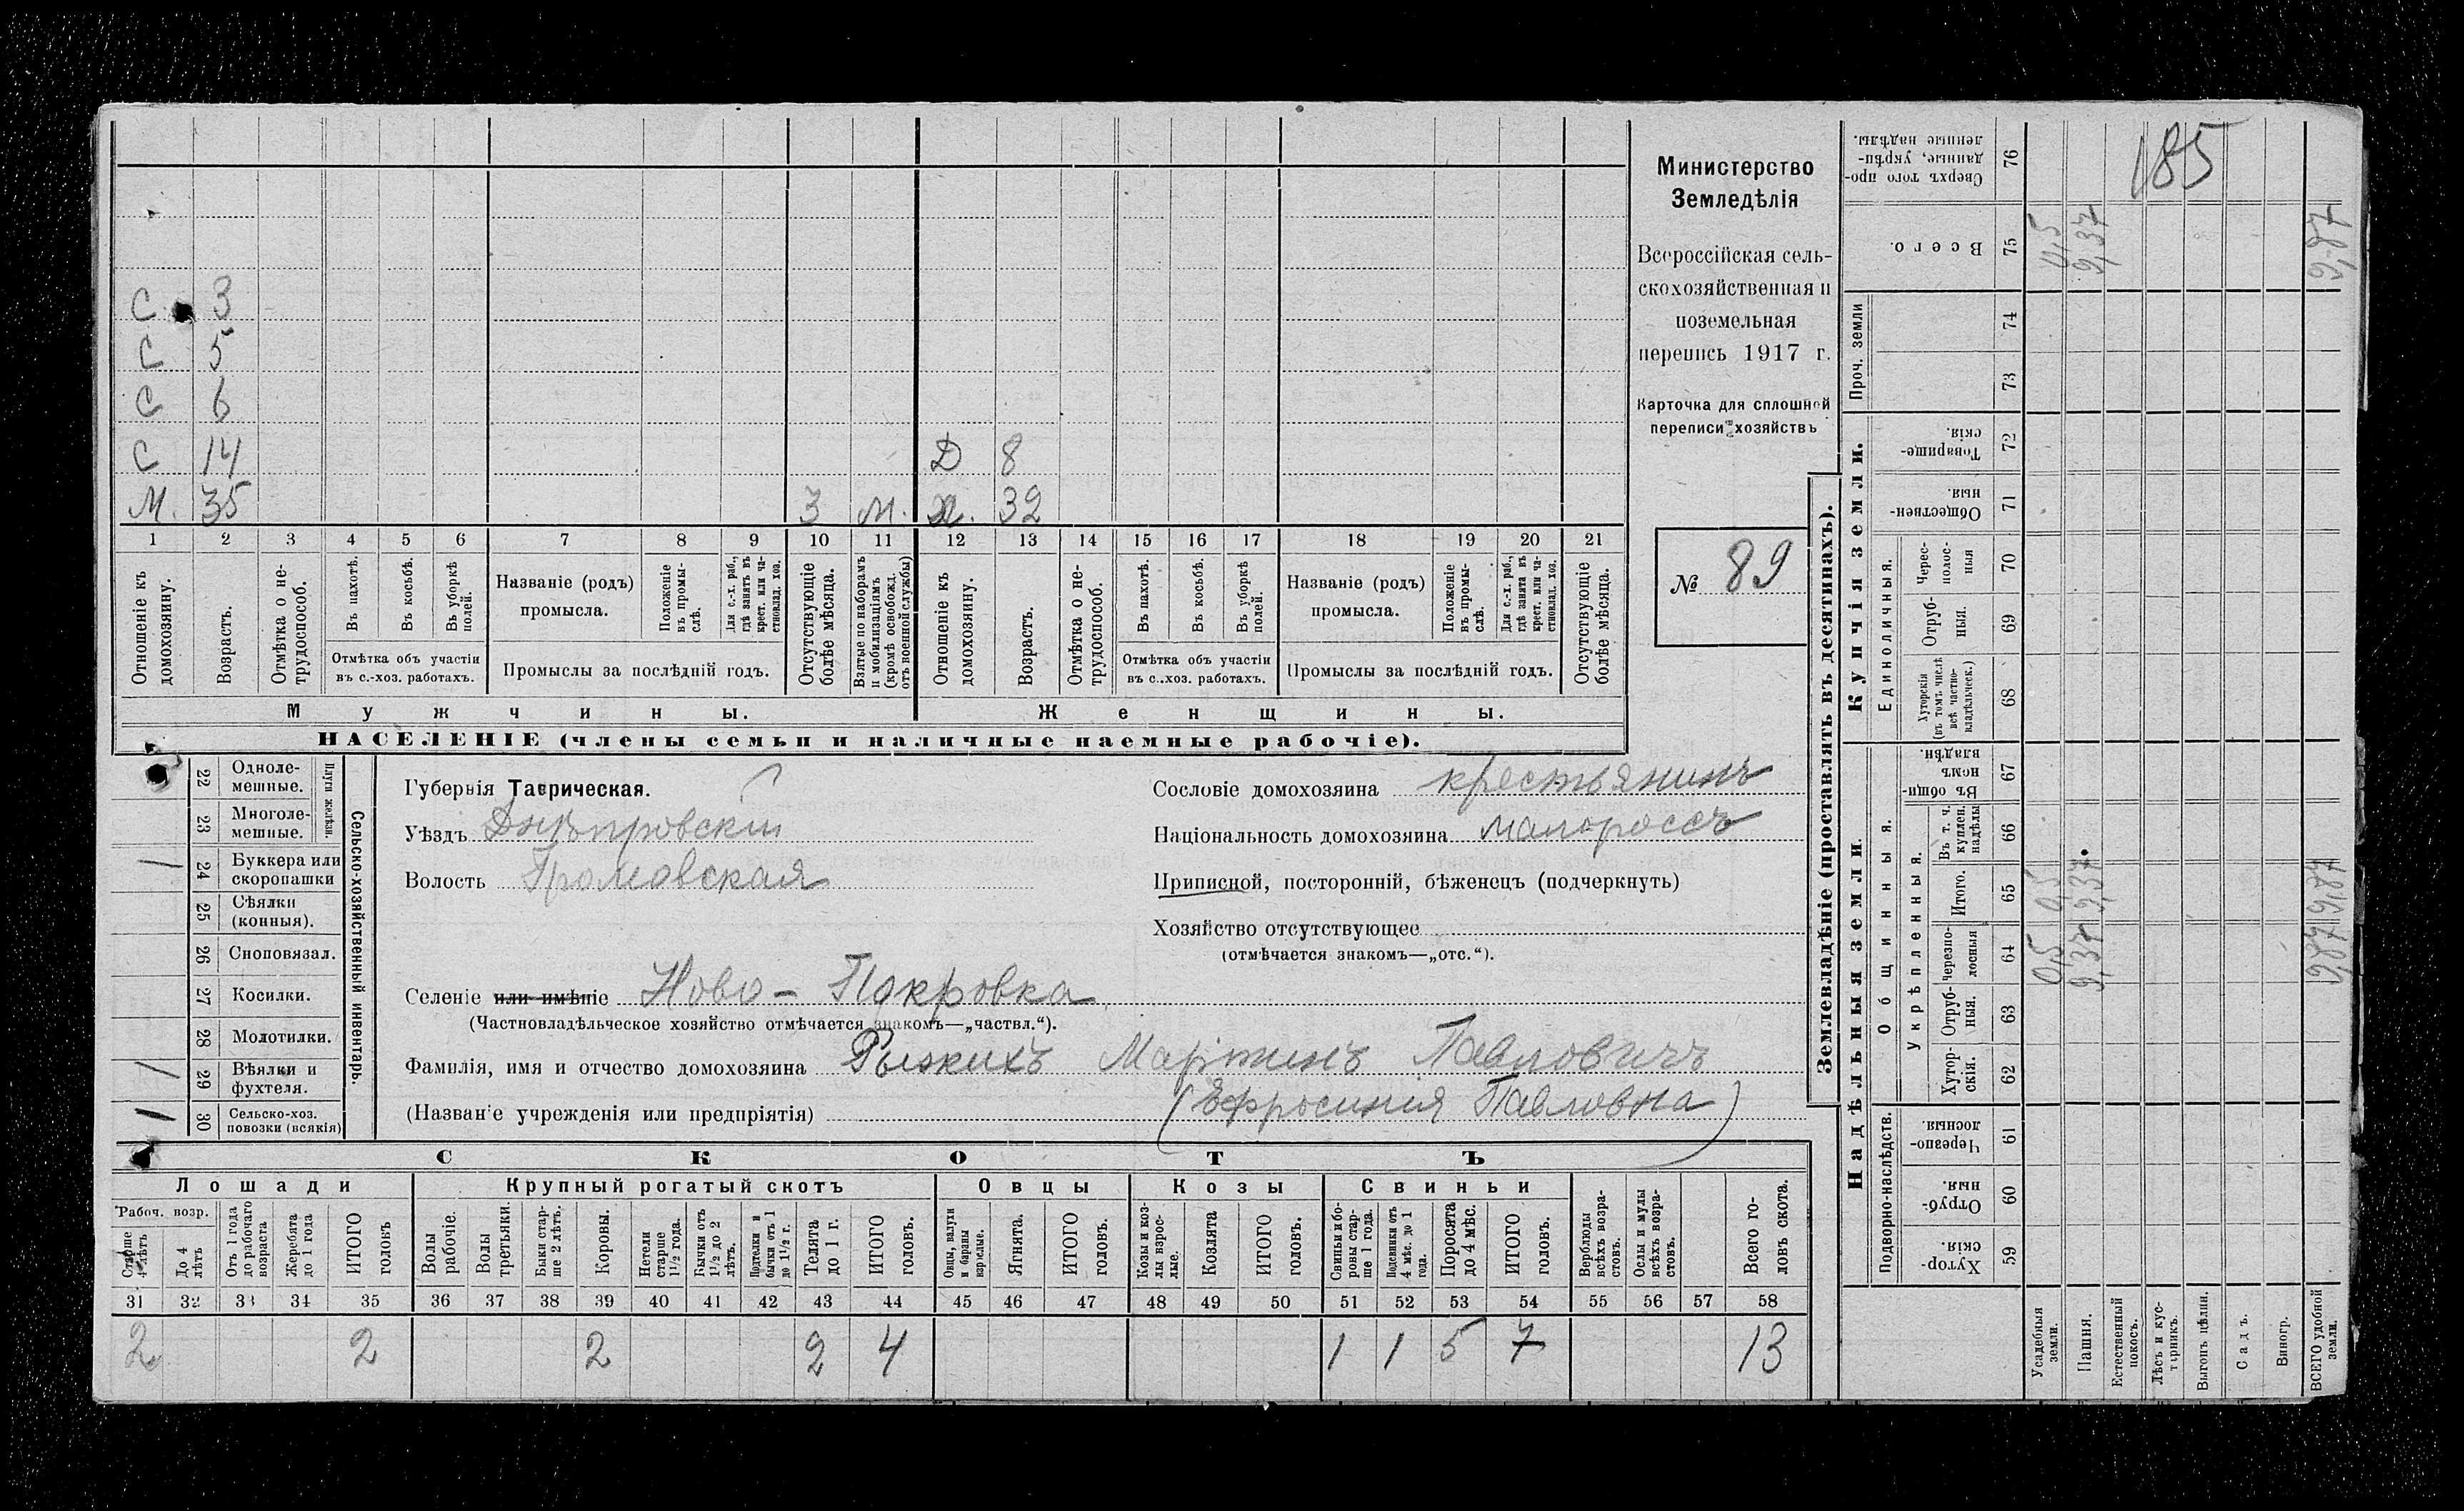 С 3
С 5
С 6
С 14 Д 8
М. 35 3 м. х. 32
1 2 3 4 5 6 7 8 9 10 11 12 13 14 15 16 17 18 19 20 21
Отношеніе къ домохозяину.
Возрастъ.
Отмѣтка о нетрудоспособ.
Въ пахотѣ.
Въ косьбѣ.
Въ уборкѣ полей.
Отмѣтка объ участіи
въ с.-хоз. работахъ.
Названіе (родъ)
промысла.
Положеніе въ промыслѣ.
Для с.-х. раб., гдѣ занятъ въ крест. или частновлад. хоз.
Промыслы за послѣдній годъ.
Отсутствующіе болѣе мѣсяца.
Взятые по наборамъ и мобилизаціямъ (кромѣ освобожд. отъ военной службы)
Отношеніе къ домохозяину.
Возрастъ.
Отмѣтка о нетрудоспособ.
Въ пахотѣ.
Въ косьбѣ.
Въ уборкѣ полей.
Отмѣтка объ участіи
въ с..хоз. работахъ.
Названіе (родъ)
промысла.
Положеніе въ промыслѣ.
Для с.-х. раб., гдѣ занята въ крест. или частновлад. хоз.
Промыслы за послѣдній годъ.
Отсутствующіе болѣе мѣсяца.
Мужчины. Женщины.
НАСЕЛЕНІЕ (члены семьи и наличные наемные рабочіе).
Министерство
Земледѣлія
Всероссійская сель-
скохозяйственная и
поземельная
перепись 1917 г.
Карточка для сплошной
переписи хозяйствъ
№ 89
Сельско-хозяйственный инвентарь.
Плуги желѣзн.
22 Одноле-
мешные.
23 Многоле-
мешные.
/ 24 Буккера или
скоропашки
25 Сѣялки
(конныя).
26 Сноповязал.
27 Косилки.
28 Молотилки.
/ 29 Вѣялки и
фухтеля.
1 30 Сельско-хоз.
повозки (всякія)
Губернія Таврическая.
Уѣздъ Днѣпровскій
Волость Громовская
Сословіе домохозяина крестьянинъ
Національность домохозяина малороссъ
Приписной, посторонній, бѣженецъ (подчеркнуть)
Хозяйство отсутствующее
(отмѣчается знакомъ—„отс.“).
Селеніе или имѣніе Ново-Покровка
(Частновладѣльческое хозяйство отмѣчается знакомъ—„частвл.“).
Фамилія, имя и отчество домохозяина Рыжихъ Мартинъ Павловичъ
(Названіе учрежденія или предпріятія) (Ефросинія Павловна)
СКОТЪ
Лошади Крупный рогатый скотъ Овцы Козы Свиньи
Рабоч. возр.
Старше 4 лѣтъ
До 4 лѣтъ
Отъ 1 года до рабочаго возраста
Жеребята до 1 года
ИТОГО головъ
Волы рабочіе.
Волы третьяки.
Быки старше 2 лѣтъ.
Коровы.
Нетели старше 1½ года.
Бычки отъ 1½ до 2 лѣтъ.
Подтелки и бычки отъ 1 до 1½ г.
Телята до 1 г.
ИТОГО головъ.
Овцы, валухи и бараны взрослые.
Ягнята.
ИТОГО головъ.
Козы и козлы взрослые.
Козлята
ИТОГО головъ.
Свиньи и боровы старше 1 года.
Подсвинки отъ 4 мѣс. до 1 года.
Поросята до 4 мѣс.
ИТОГО головъ.
Верблюды всѣхъ возрастовъ.
Ослы и мулы всѣхъ возрастовъ.
Всего головъ скота.
31 32 33 34 35 36 37 38 39 40 41 42 43 44 45 46 47 48 49 50 51 52 53 54 55 56 57 58
2 2 2 2 4 1 1 5 7 13
Землевладѣніе (проставлять въ десятинахъ).
Надѣльныя земли. Купчія земли. Проч. земли
Подворно-наслѣдств.
Общинныя.
Укрѣпленныя.
Единоличныя.
59 Хуторскія.
60 Отрубныя.
61 Черезполосныя.
62 Хуторскія.
63 Отрубныя.
64 Черезполосныя 0,5 9,37 9,87
65 Итого. 0,5 9,37 9,87
66 Въ т. ч. куплен. надѣлы
67 Въ общинномъ владѣн.
68 Хуторскія (въ томъ числѣ всѣ частновладѣльческ.)
69 Отрубныя.
70 Чересполосныя
71 Общественныя.
72 Товарищескія.
73
74
75 Всего. 0,5 9,37 9,87
76 Сверхъ того проданные, укрѣпленные надѣлы.
185
Усадебныя земли.
Пашня.
Естественный покосъ.
Лѣсъ и кустарникъ.
Выгонъ цѣлин.
Садъ.
Виногр.
ВСЕГО удобной земли.